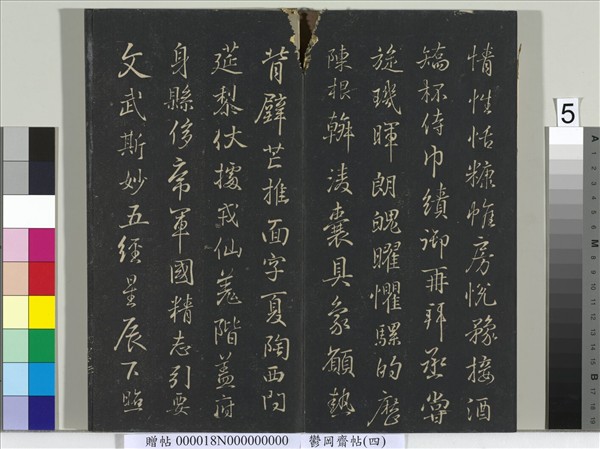 情性恬糠帷房悅豫接酒
矯杯侍巾績御再拜丞嘗
旋璣暉朗魄曜懼騾的歷
陳根斡凌囊具象願熱
背璧芒推面字夏陶西問
筵梨伏據戎仙羌階蓋府
身縣侈帝軍國精志引要
文武斯妙五經星辰下照
5
贈帖 000018N000000000 鬱岡齋帖(四)